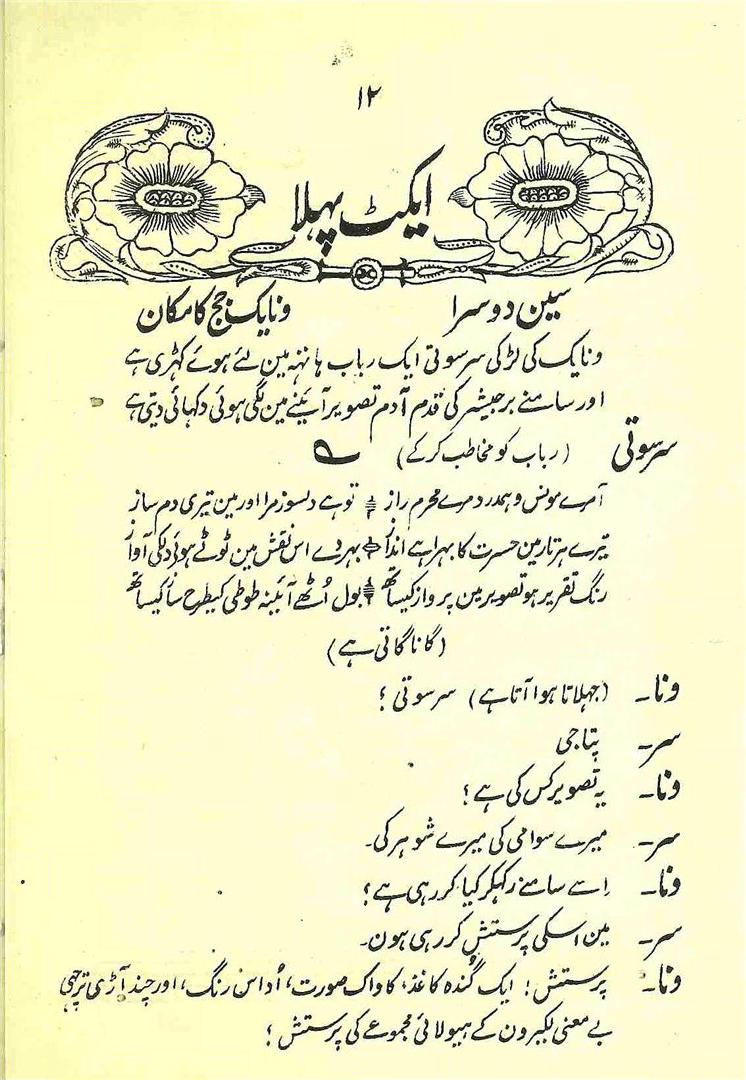 ۱۲
ایکٹ پہلا
سین دوسرا ونایک جج کا مکان
ونایک کی لڑکی سرسوتی ایک رباب ہاتہہ مین لئے ہوئے کہڑی ہے
اور سامنے برجیشر کی قدم آدم تصویر آئینے مین لگی ہوئی دکہائی دیتی ہے
سرسوتی (رباب کو مخاطب کرکے)
آمرے مونس و ہمدرد مرے محرم راز تو ہے دلسوز مرا اور مین تیری دم ساز
تیرے ہر تار مین حسرت کا بہرا ہے انداز بہردے اس نقش مین ٹوٹے ہوئے دلکی آواز
رنگ تقریر ہو تصویر مین پرواز کیساتھ بول اُٹھے آئینہ طوطی کیطرح ساز کیساتھ
(گانا گاتی ہے)
ونا۔ (جہلاتا ہوا آتا ہے) سرسوتی ؟
سر۔ پتاجی
ونا۔ یہ تصویر کس کی ہے ؟
سر۔ میرے سوامی کی میرے شوہر کی۔
ونا۔ اِسے سامنے رکہکر کیا کر رہی ہے ؟
سر۔ مین اسکی پرستش کر رہی ہون۔
ونا۔ پرستش ! ایک گندہ کاغذ، کاواک صورت، اُداس رنگ، اور چند آڑی ترچہی
بے معنی لکیرون کے ہیولائی مجموعے کی پرستش ؟